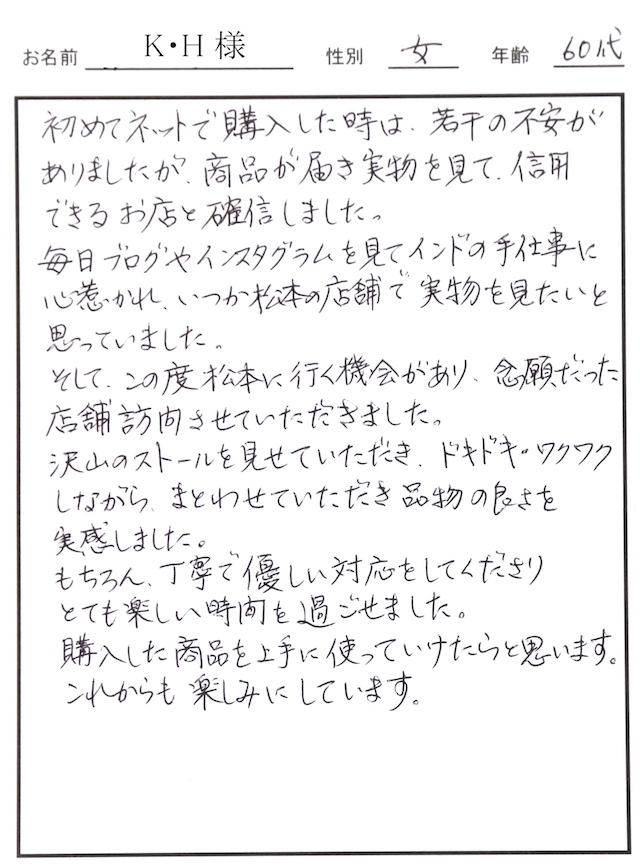 お名前 K・H 様 性別 女 年齢 60代
初めてネットで購入した時は、若干の不安が
ありましたが、商品が届き実物を見て、信用
できるお店と確信しました。
毎日ブログやインスタグラムを見てインドの手仕事に
心惹かれ、いつか松本の店舗で実物を見たいと
思っていました。
そして、この度松本に行く機会があり、念願だった
店舗訪問させていただきました。
沢山のストールを見せていただき、ドキドキ・ワクワク
しながら、まとわせていただき品物の良さを
実感しました。
もちろん、丁寧で優しい対応をしてくださり
とても楽しい時間を過ごせました。
購入した商品を上手に使っていけたらと思います。
これからも楽しみにしています。